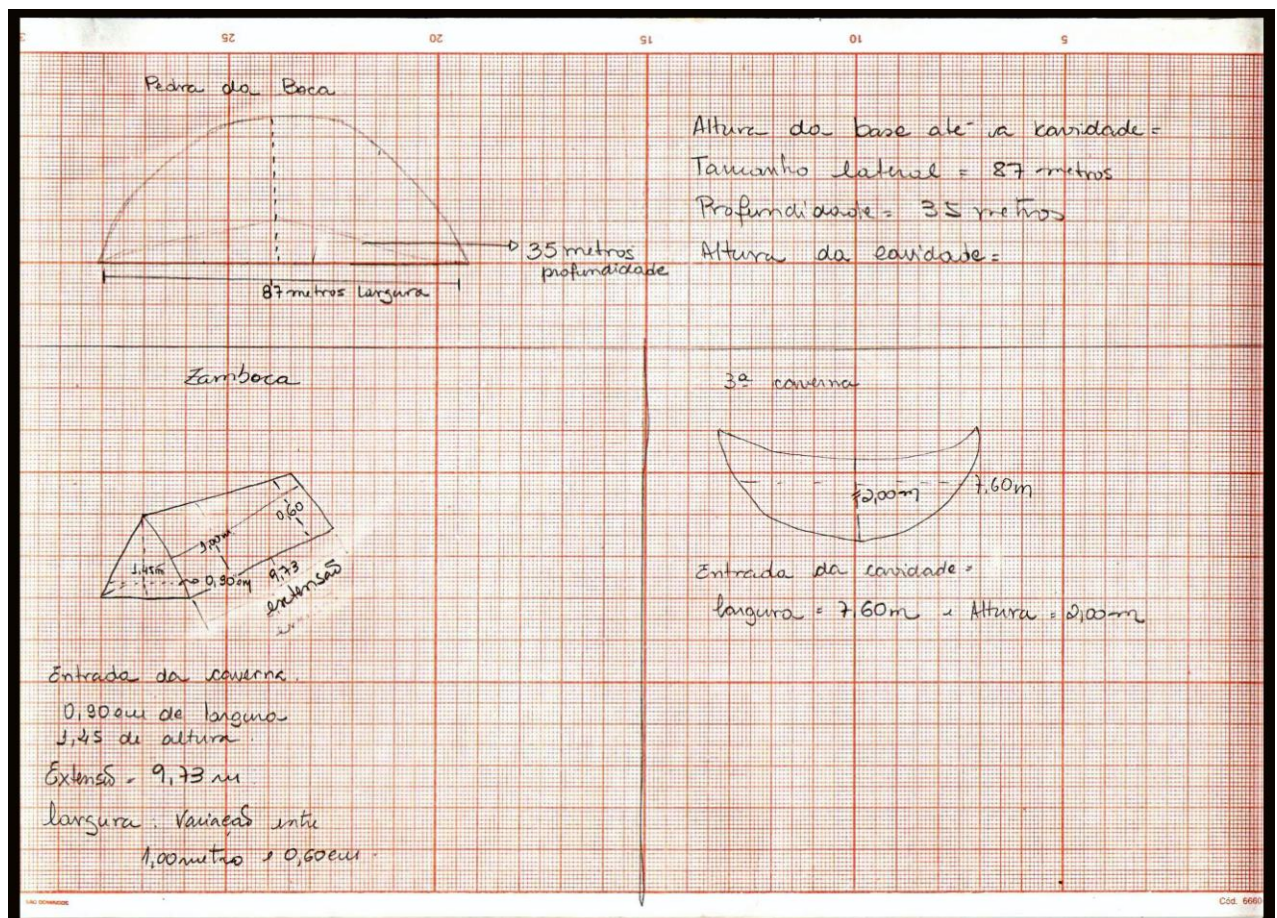 25
20
15
10
5
Pedra da Boca
35 metros
profundidade
87 metros Largura
Altura da base até a kavidade =
Tamanho lateral = 87 metros
Profundidade = 35 metros
Altura da cavidade =
Zamboca
1,00m
0,60
1,45m
0,90cm
9,73
extensão
Entrada da caverna.
0,90cm de largura
1,45 de altura.
Extensão = 9,73 m
largura: Variacão entre
1,00 metro e 0,60cm.
3ª caverna
2,00m
7,60m
Entrada da cavidade =
largura = 7,60m e Altura = 2,00m
SÃO DOMINGOS
Cód. 6660